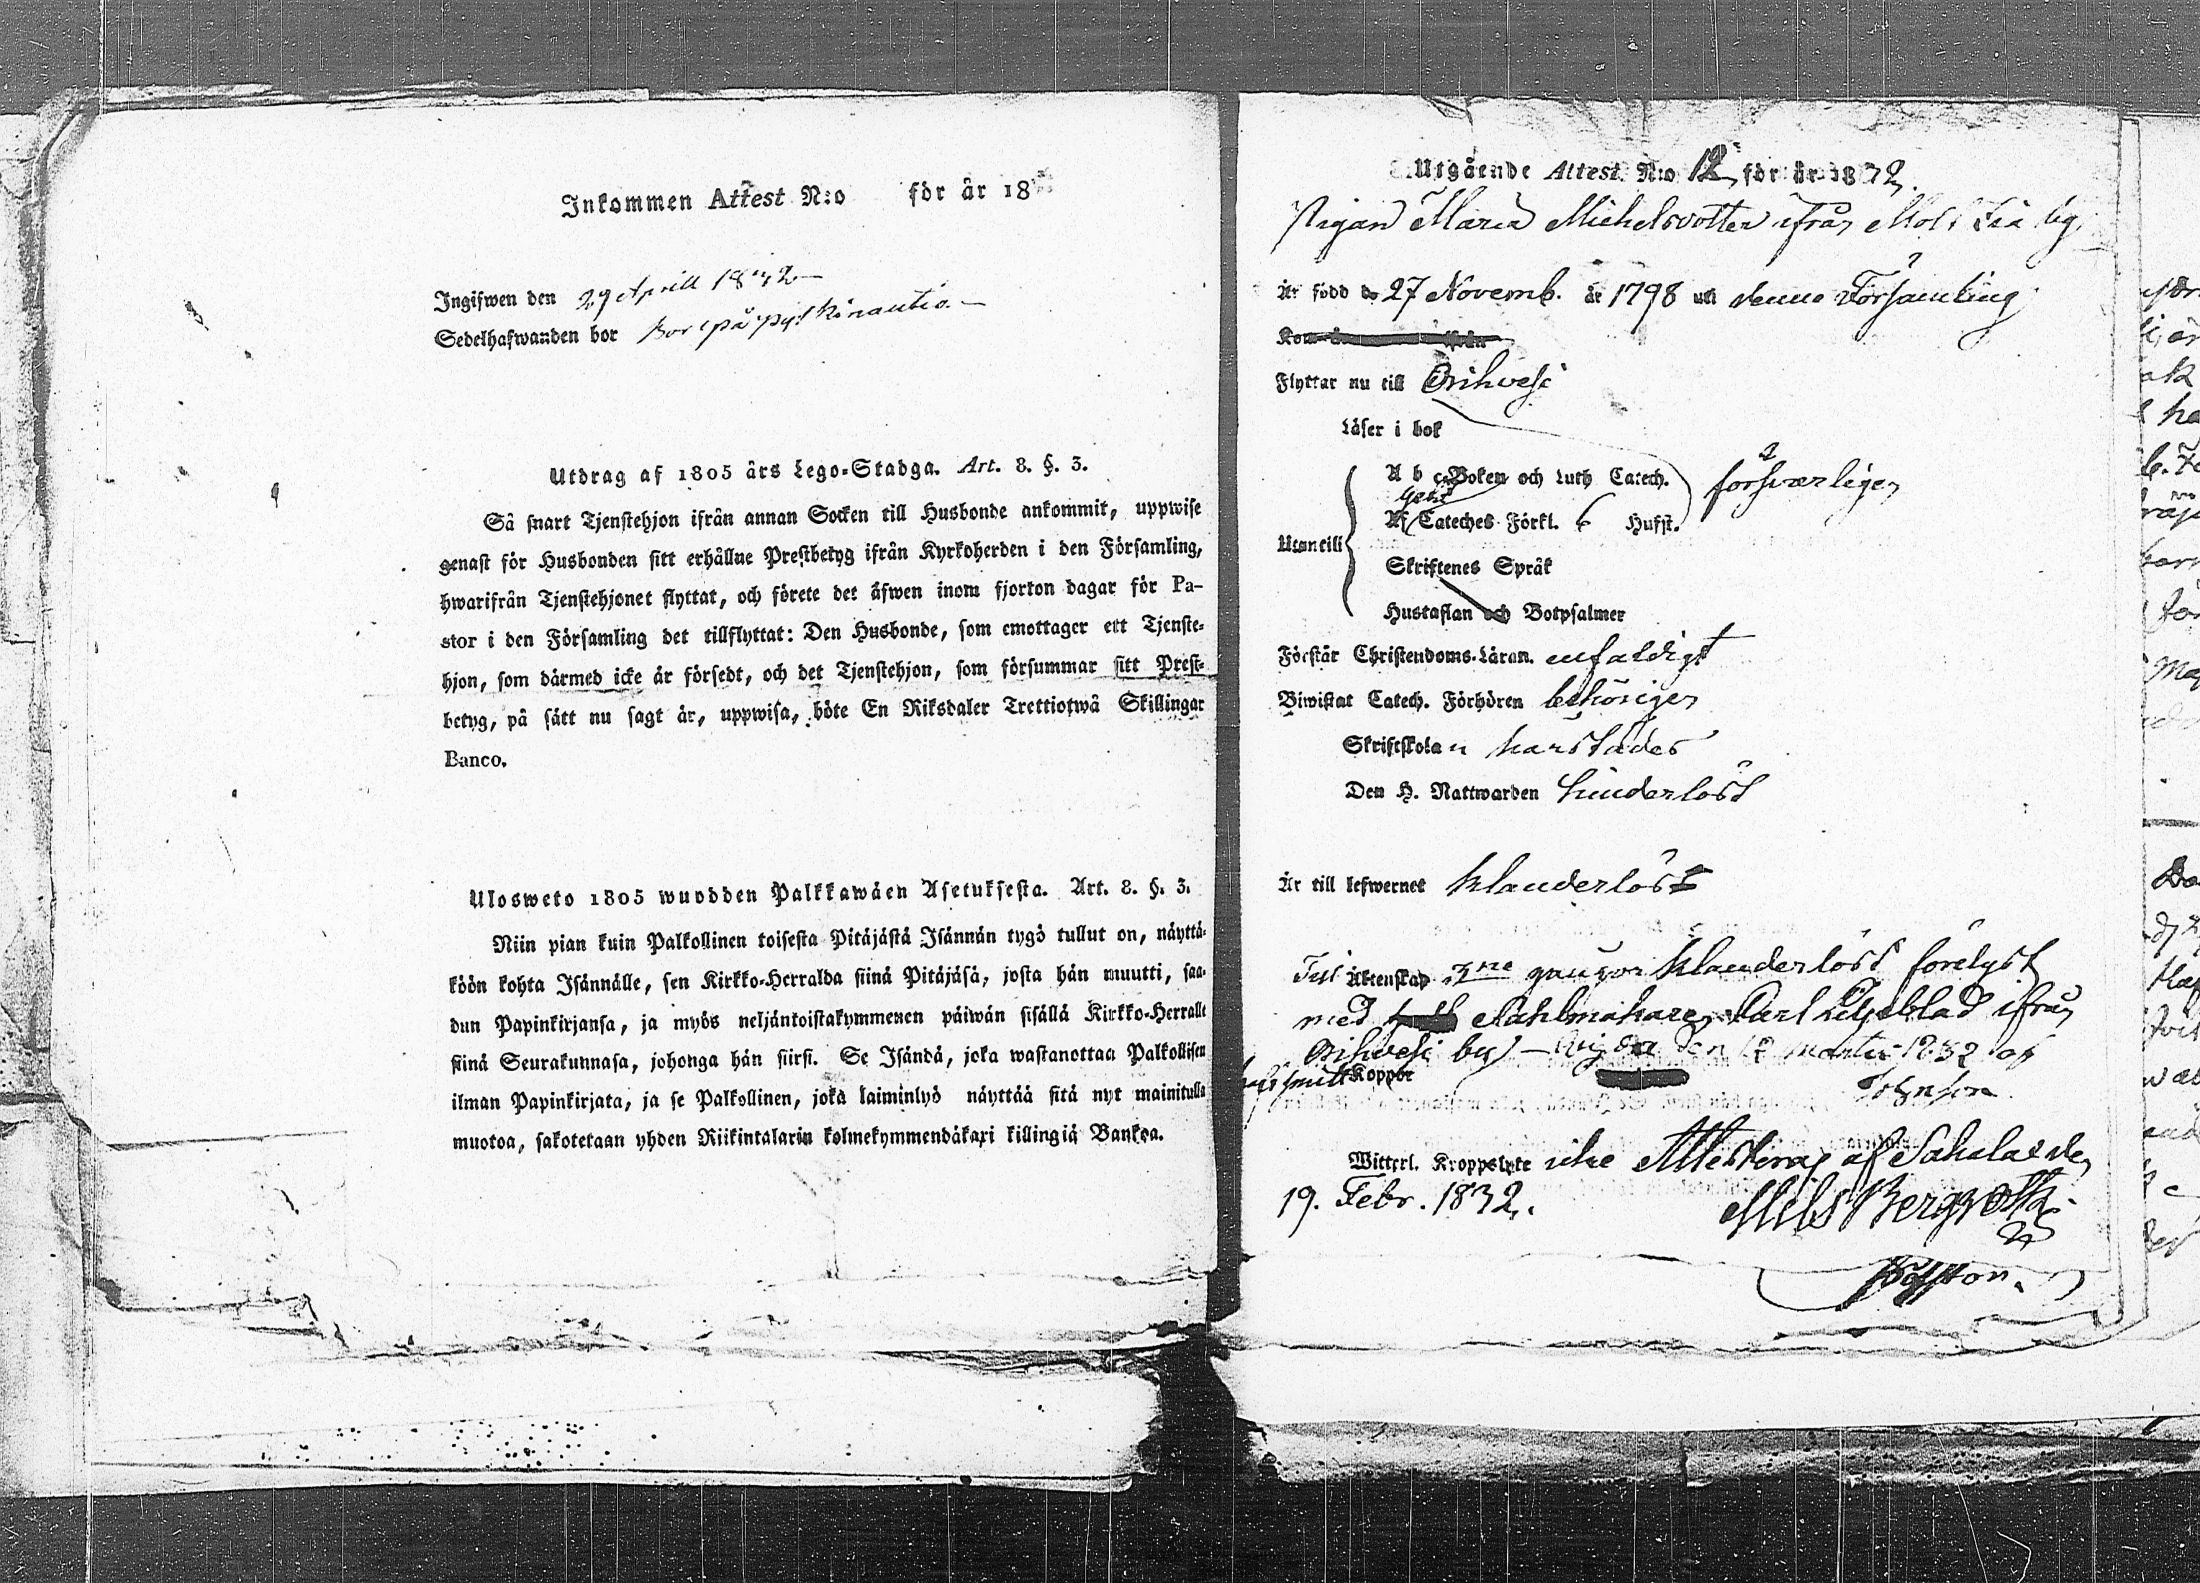 Inkommen Attest N:o för år 18
Ingifwen den 29 Aprill 1832
Sedelhafwanden bor bor på
Utdrag af 1805 års Lego-Stadga. Art. 8. §. 3.
Så snart Tjenstehjon ifrån annan Socken till Husbonde ankommit, uppwise
genast för Husbonden sitt erhållne Prestbetyg ifrån Kyrkoherden i den Församling,
hwarifrån Tjenstehjonet flyttat, och förete det äfwen inom fjorton dagar för Pa-
stor i den Församling det tillflyttat: Den Husbonde, som emottager ett Tjenste-
hjon, som dårmed icke är försedt, och det Tjenstehjon, som försummar sitt Prest-
betyg, på sått nu sagt år, uppwisa, böte En Riksdaler Trettiotwå Skillingar
Banco.
Ulosweto 1805 wuodden Palkkawåen Asetuksesta. Art. 8. §. 3.
Niin pian kuin Palkollinen toisesta Pitåjåstå Isånnån tygö tullut on, nåyttå-
köön kohta Isånnålle, sen Kirkko-Herralda siinå Pitåjåså, josta hån muutti, saa-
dun Papinkirjansa, ja myös neljåntoistakymmenen påiwån sisållå Kirkko-Herralle
siinå Seurakunnasa, johonga hån siirsi. Se Isåndå, joka wastanottaa Palkollisen
ilman Papinkirjata, ja se Palkollinen, joka laiminlyö nåyttåå sitå nyt mainitulla
muotoa, sakotetaan yhden Riikintalarin kolmekymmendåkaxi killingiå Bankoa.
Utgående Attest N:o 12 för år 1832.
Pigan Maria Michelsdotter ifrån
Är född d. 27 Novemb. år 1798 uti denna Församling
Kom ifrån
Flyttar nu till Orihvesi
Läser i bok
A b c-Boken och Luth Catech. försvarligen
Af Cateches Förkl. 6 Husst.
Utantill
Skriftenes Språk
Hustaflan och Botpsalmer
Förstår Christendoms-Låran. enfaldigt
Biwistat Catech. Förhören behörigen
Skriftskolan härstädes
Den H. Nattwarden hinderlöst
År till lefwernet klanderlöst
Till Äktenskap 3ne gångor klanderlöst förelyst
med Carl Liljeblad ifrån
Orihvesi by den Martii 1832 af
Koppor
Witterl. Kroppslyte icke Attesteras af Sahalax den
19. Febr. 1832.
Nils Bergroth